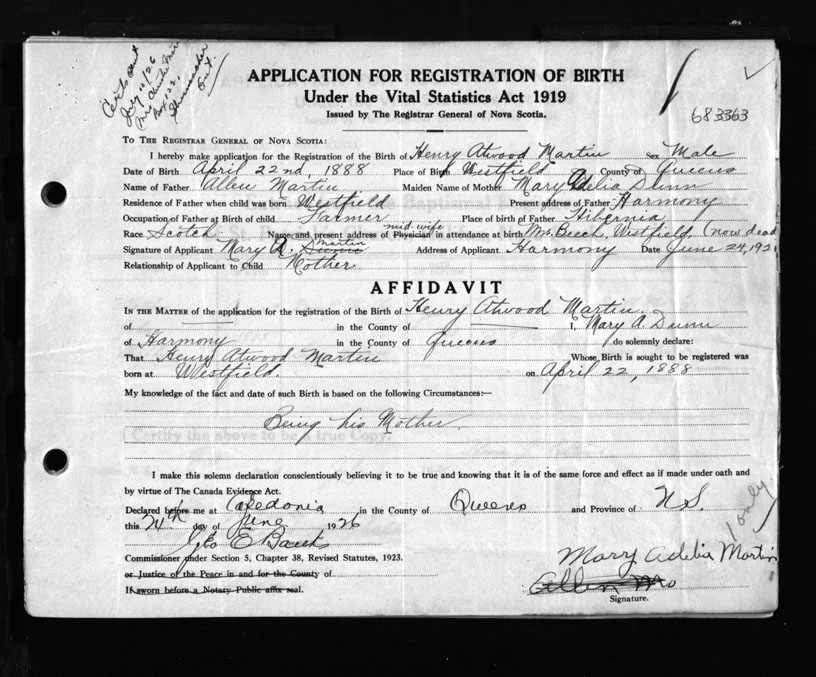 Cert sent
July 10/26
Mrs
Box 22,
Schumacher
Ont.
683363
APPLICATION FOR REGISTRATION OF BIRTH
Under the Vital Statistics Act 1919
Issued by The Registrar General of Nova Scotia.
TO THE REGISTRAR GENERAL OF NOVA SCOTIA:
I hereby make application for the Registration of the Birth of Henry Atwood Martin sex Male
Date of Birth April 22nd, 1888 Place of Birth Westfield County of Queens
Name of Father Allen Martin Maiden Name of Mother Mary Adelia Dunn
Residence of Father when child was born Westfield Present address of Father Harmony
Occupation of Father at Birth of child Farmer Place of birth of Father Hibernia
mid-wife
Race Scotch Name and present address of Physician in attendance at birth Mrs. Beech, Westfield, (now dead
Martin
Signature of Applicant Mary A. Dunn Address of Applicant Harmony Date June 24, 192
Relationship of Applicant to Child Mother
AFFIDAVIT
IN THE MATTER of the application for the registration of the Birth of Henry Atwood Martin.
of in the County of I, Mary A. Dunn
of Harmony in the County of Queens do solemnly declare:
That Henry Atwood Martin Whose Birth is sought to be registered was
born at Westfield. on April 22, 1888
My knowledge of the fact and date of such Birth is based on the following Circumstances:—
Being his Mother.
I make this solemn declaration conscientiously believing it to be true and knowing that it is of the same force and effect as if made under oath and
by virtue of The Canada Evidence Act.
Declared before me at Caledonia in the County of Queens and Province of N.S.
this 24th day of June 1926
only
Geo E Banks
Commissioner under Section 5, Chapter 38, Revised Statutes, 1923.
Mary Adelia Martin
or Justice of the Peace in and for the County of
Allen
If sworn before a Notary Public affix seal.
Signature.